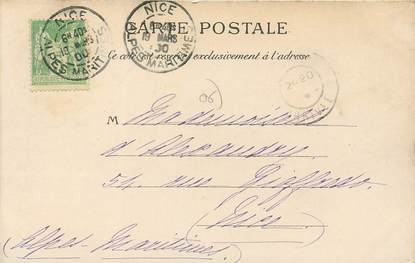 NICE
ALPES MARITIMES
NICE
19 MARS
00
ALPES MARITIMES
CARTE POSTALE
Ce côté est réservé exclusivement à l'adresse
06
M Mademoiselle
d'Alexandry
54, rue Gioffredo
Nice
(Alpes-Maritimes)